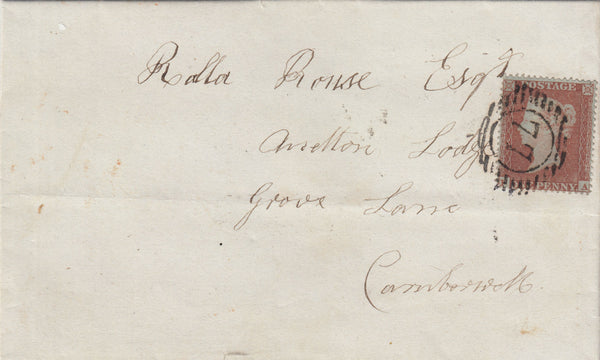 Rolla Rouse Esqr
Lodge
Grove Lane
Camberwell
POSTAGE
77
PENNY A